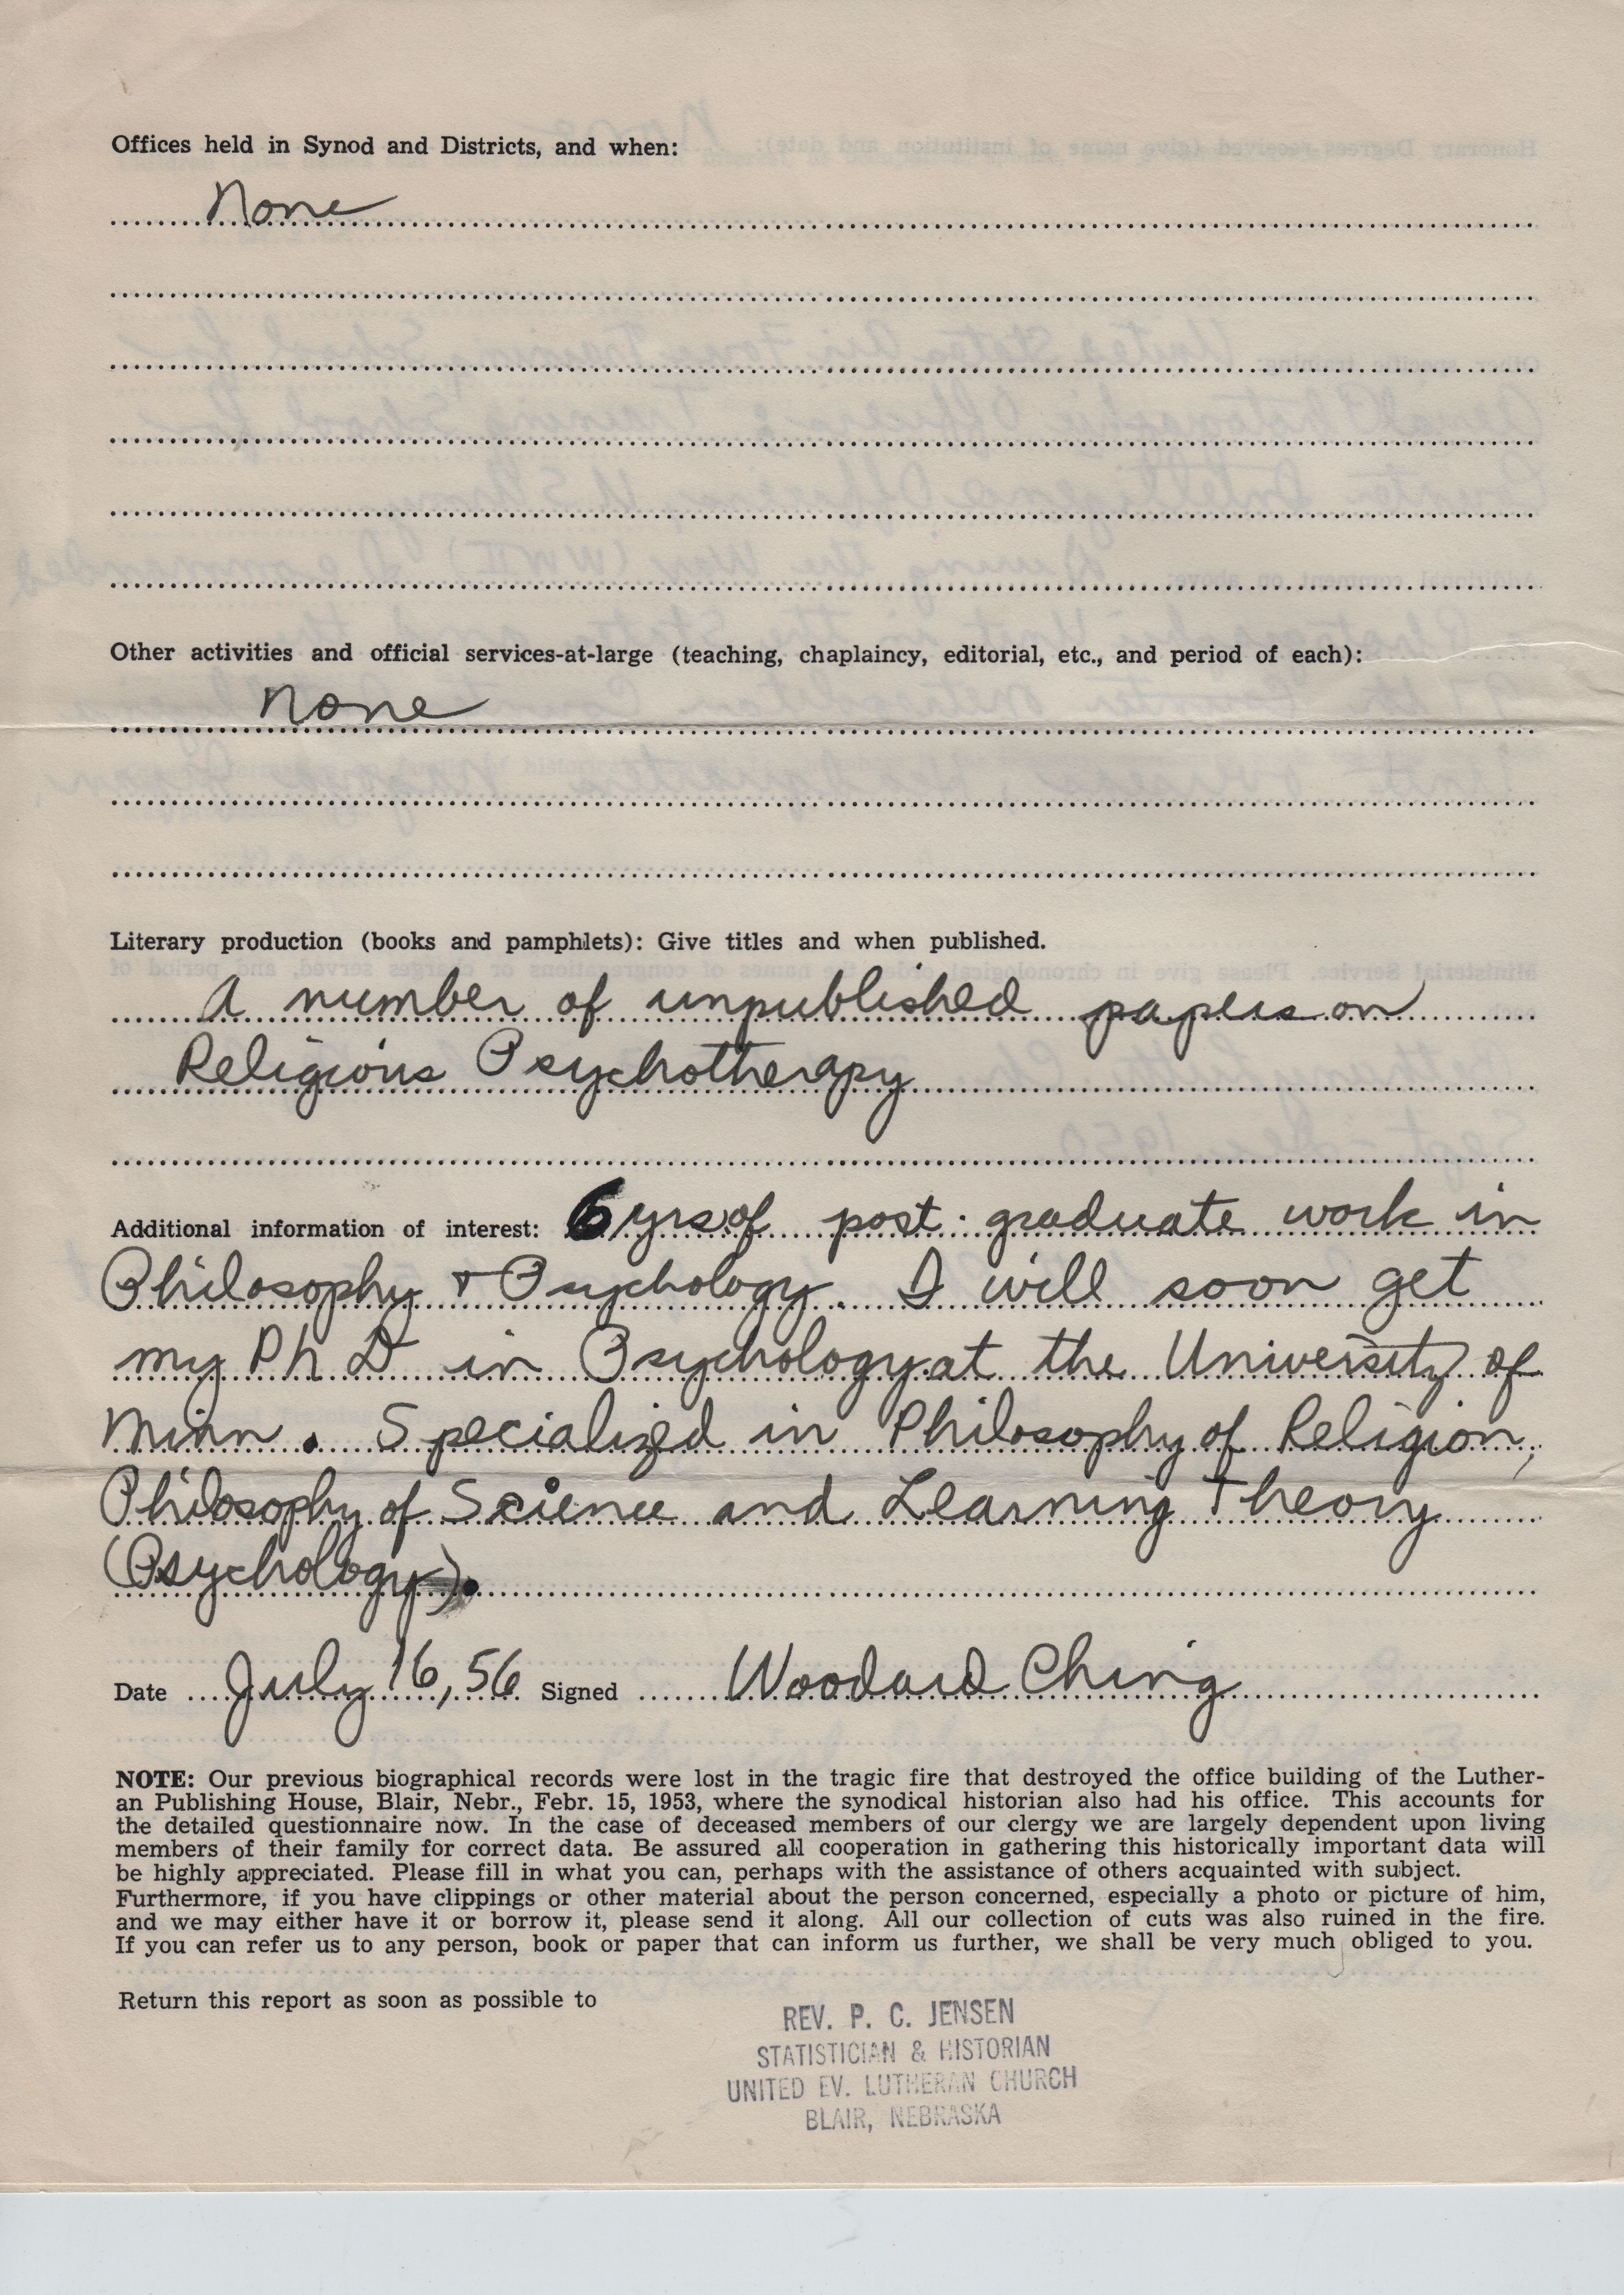 Offices held in Synod and Districts, and when:
None
Other activities and official services-at-large (teaching, chaplaincy, editorial, etc., and period of each):
None
Literary production (books and pamphlets): Give titles and when published.
A number of unpublished papers on
Religious Psychotherapy
Additional information of interest: 6 yrs of post-graduate work in
Philosophy + Psychology. I will soon get
my Ph D in Psychology at the University of
Minn. Specialized in Philosophy of Religion,
Philosophy of Science and Learning Theory
(Psychology).
Date July 16, 56 Signed Woodard Ching
NOTE: Our previous biographical records were lost in the tragic fire that destroyed the office building of the Luther-
an Publishing House, Blair, Nebr., Febr. 15, 1953, where the synodical historian also had his office. This accounts for
the detailed questionnaire now. In the case of deceased members of our clergy we are largely dependent upon living
members of their family for correct data. Be assured all cooperation in gathering this historically important data will
be highly appreciated. Please fill in what you can, perhaps with the assistance of others acquainted with subject.
Furthermore, if you have clippings or other material about the person concerned, especially a photo or picture of him,
and we may either have it or borrow it, please send it along. All our collection of cuts was also ruined in the fire.
If you can refer us to any person, book or paper that can inform us further, we shall be very much obliged to you.
Return this report as soon as possible to
REV. P. C. JENSEN
STATISTICIAN & HISTORIAN
UNITED EV. LUTHERAN CHURCH
BLAIR, NEBRASKA